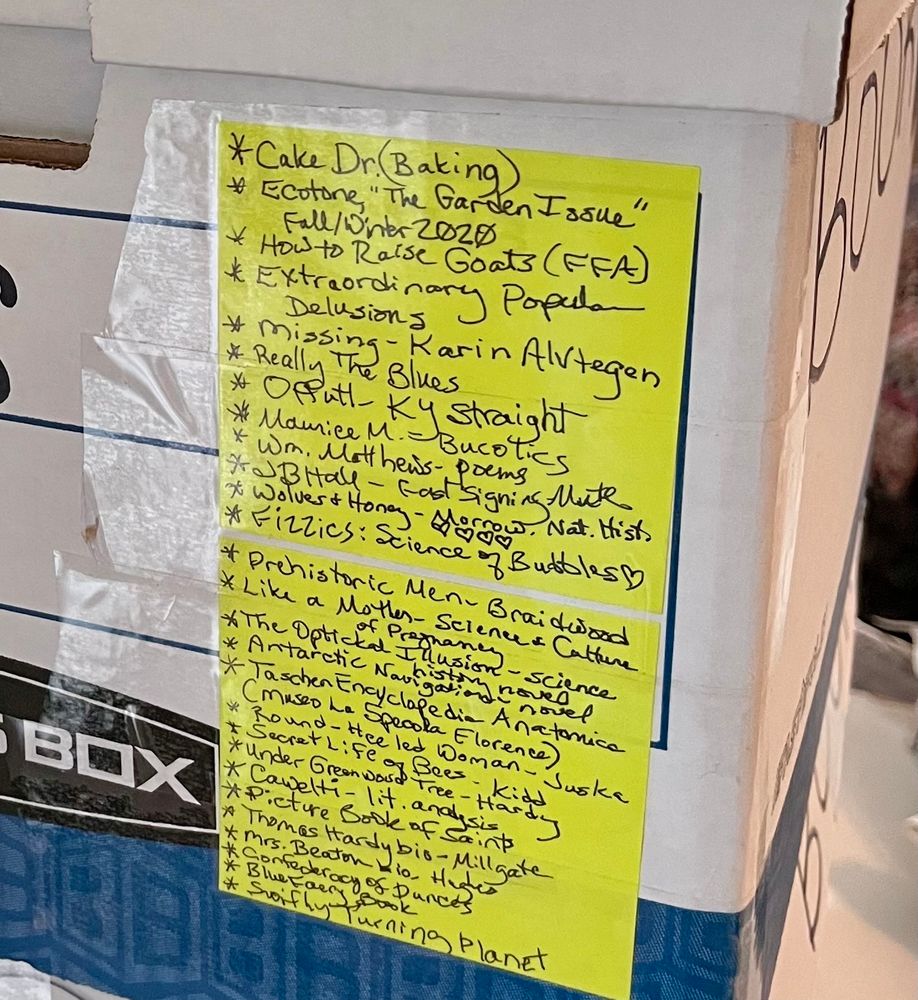 * Cake Dr. (Baking)
* Ecotone, "The Garden Issue"
Fall/Winter 2020
* How to Raise Goats (FFA)
* Extraordinary Popular
Delusions
* Missing - Karin Alvtegen
* Really The Blues
* Offutt - KY Straight
* Maurice M. - Bucotics
* Wm. Matthews - poems
* JB Hall - Fast Signing Mute
* Wolves & Honey - Morrow. Nat. Hist
♡♡♡♡
* Fizzics: Science of Bubbles ♡
* Prehistoric Men - Braidwood
* Like a Mother - Science & Culture
of Pregnancy
* The Optickal Illusion - science
history novel
* Antarctic Navigation novel
* Taschen Encyclopedia Anatomica
(Museo La Specola Florence)
* Round-Heeled Woman - Juska
* Secret Life of Bees - Kidd
* Under Greenwood Tree - Hardy
* Cawelti - lit. analysis
* Picture Book of Saints
* Thomas Hardy bio - Millgate
* Mrs. Beaton bio, Hughes
* Confederacy of Dunces
* Blue Faery Book
* Swiftly Turning Planet
S BOX